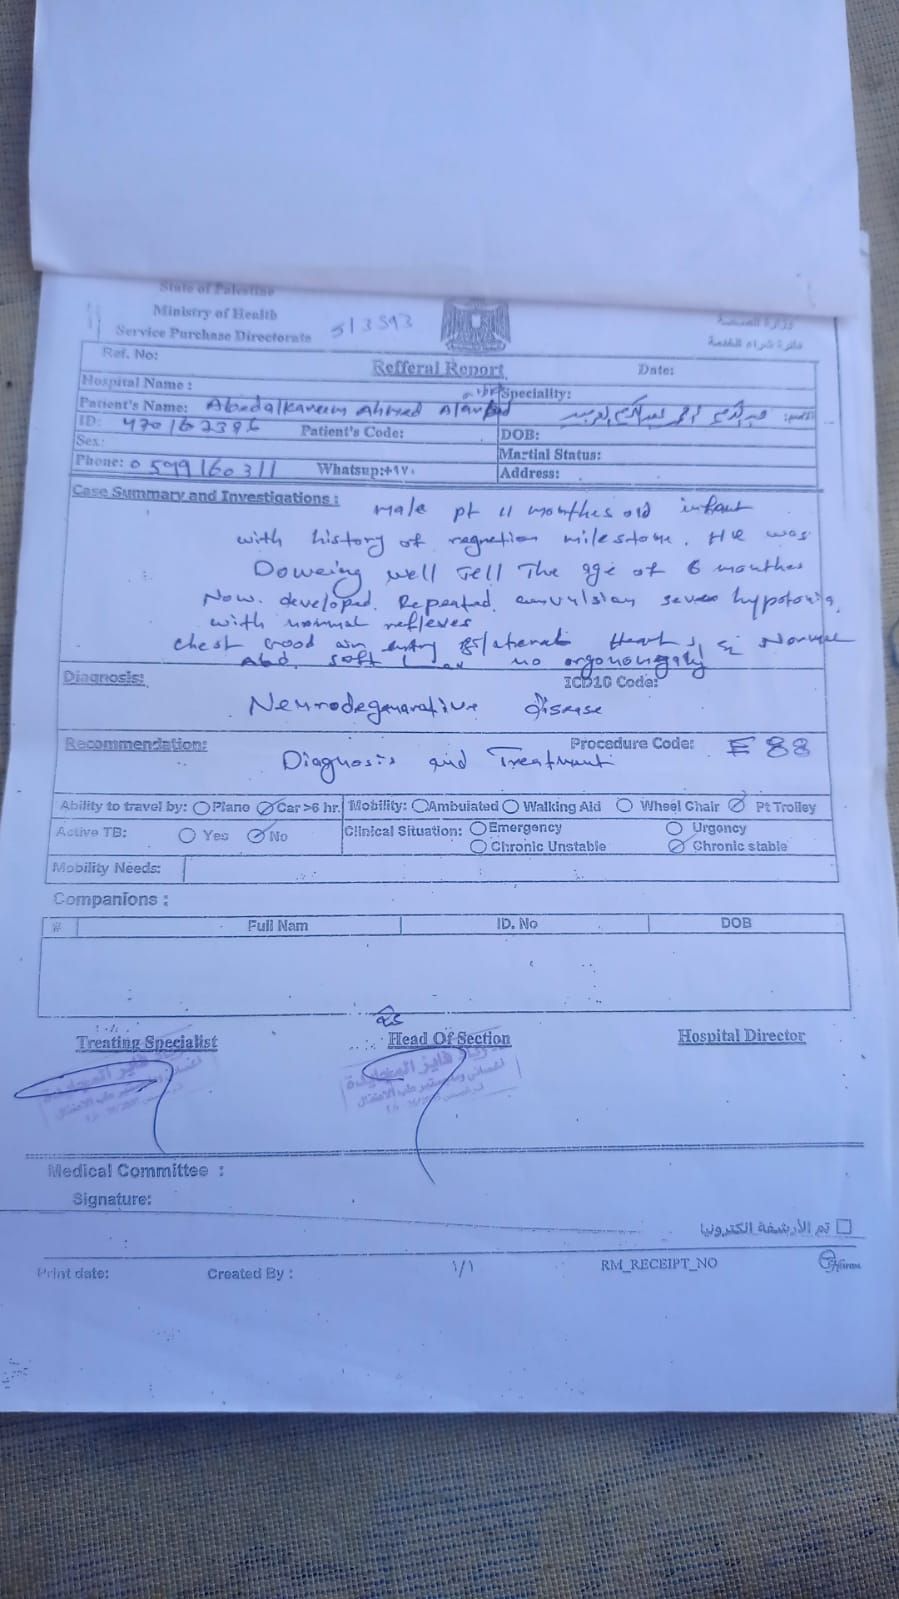 State of Palestine
Ministry of Health
Service Purchase Directorate
وزارة الصحة
دائرة شراء الخدمة
Ref. No:
Refferal Report
Date:
Hospital Name :
Speciality:
Patient's Name: Abedalkareem Ahmed
الاسم: عبد الكريم احمد عبد الكريم
ID:
Patient's Code:
DOB:
Sex:
Martial Status:
Phone: 0599160311
Whatsup:+٩٧٠
Address:
Case Summary and Investigations :
Male pt 11 monthes old infant
with history of milestone. He was
Doweing well Tell The age of 6 monthes
Now. developed. Repeated. convulsion hypotonia,
with normal reflexes
chest Good air entry Heart Normal
Abd. soft no
Diagnosis:
ICD10 Code:
Neurodegenarative disease
Recommendation:
Procedure Code: E 88
Diagnosis and Treatment
Ability to travel by: Plane Car >6 hr. Mobility: Ambulated Walking Aid Wheel Chair Pt Trolley
Active TB: Yes No Clinical Situation: Emergency Urgency
Chronic Unstable Chronic stable
Mobility Needs:
Companions :
# Full Nam ID. No DOB
Treating Specialist
Head Of Section
Hospital Director
Medical Committee :
Signature:
تم الأرشفة الكترونيا
Print date:
Created By :
١/١
RM_RECEIPT_NO